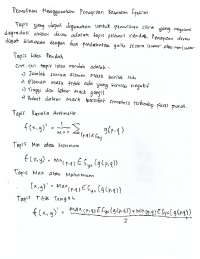 Pemulihan Menggunakan Penapisan Kawasan Spasial
Tapis yang dapat digunakan untuk pemulihan citra yang mengalami
degradasi akibat derau adalah tapis pelewat rendah. Penapisan derau
dapat dilakukan dengan dua pendekatan yaitu secara linear atau non linear
Tapis Lolos Rendah
Ciri-ciri tapis lolos rendah adalah:
a) Jumlah semua elemen mask bernilai satu
b) Elemen mask tidak ada yang bernilai negatif
c) Tinggi dan lebar mask ganjil
d) Bobot dalam mask bersifat simetris terhadap piksel pusat.
Tapis Rerata Aritmetik
f(x,y)' = 1/mn Σ (p,q)∈Sxy g(p,q)
Tapis Min atau Minimum
f(x,y)' = Min(p,q)∈Sxy (g(p,q))
Tapis Max atau Maksimum
(x,y)' = Max(p,q)∈Sxy (g(p,q))
Tapis Titik Tengah
f(x,y)' = max(p,q)∈Sxy (g(p,q)) + min(p,q)∈Sxy (g(p,q))
2